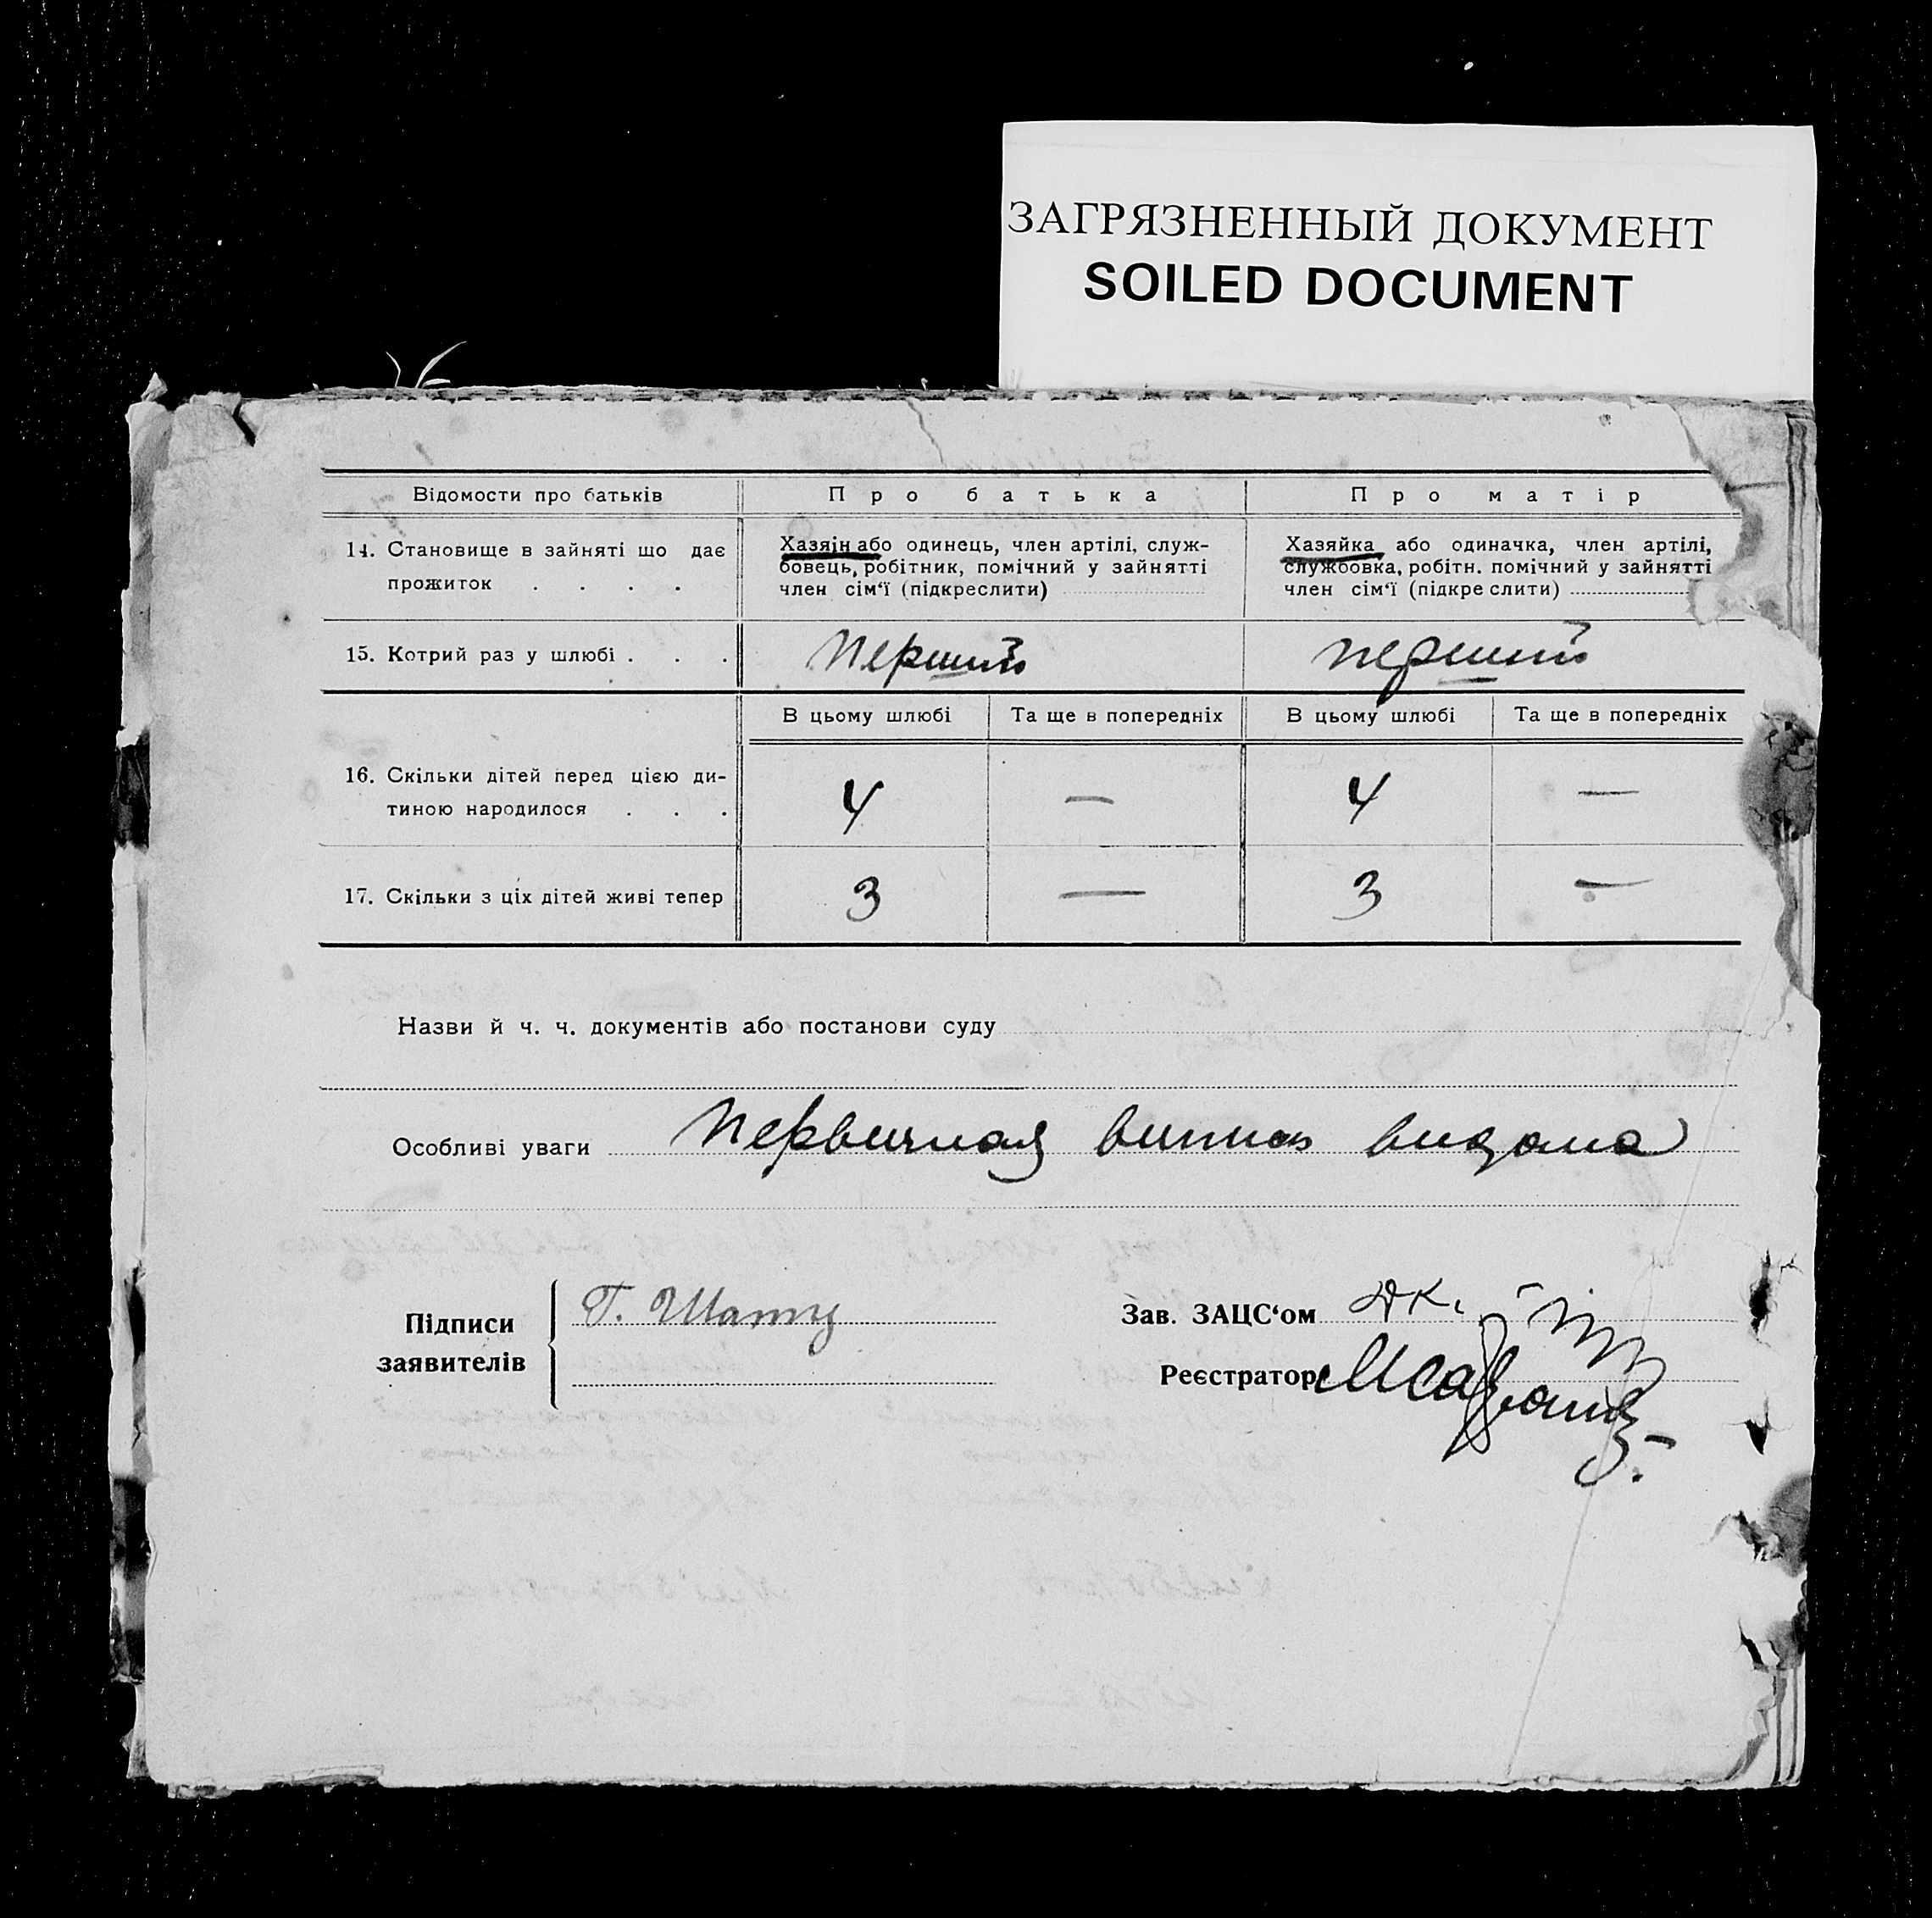 ЗАГРЯЗНЕННЫЙ ДОКУМЕНТ
SOILED DOCUMENT
Відомости про батьків
Про батька
Про матір
14. Становище в зайняті що дає
прожиток . . . .
Хазяін або одинець, член артілі, служ-
бовець, робітник, помічний у зайнятті
член сім‘ї (підкреслити)
Хазяйка або одиначка, член артілі,
службовка, робітн. помічний у зайнятті
член сім‘ї (підкреслити)
15. Котрий раз у шлюбі . . .
Перший
перший
В цьому шлюбі
Та ще в попередніх
В цьому шлюбі
Та ще в попередніх
16. Скільки дітей перед цією ди-
тиною народилося . . .
4
—
4
—
17. Скільки з ціх дітей живі тепер
3
—
3
—
Назви й ч. ч. документів або постанови суду
Особливі уваги Первичная випис видана
Підписи
заявителів
Г.
Зав. ЗАЦС‘ом
Реєстратор